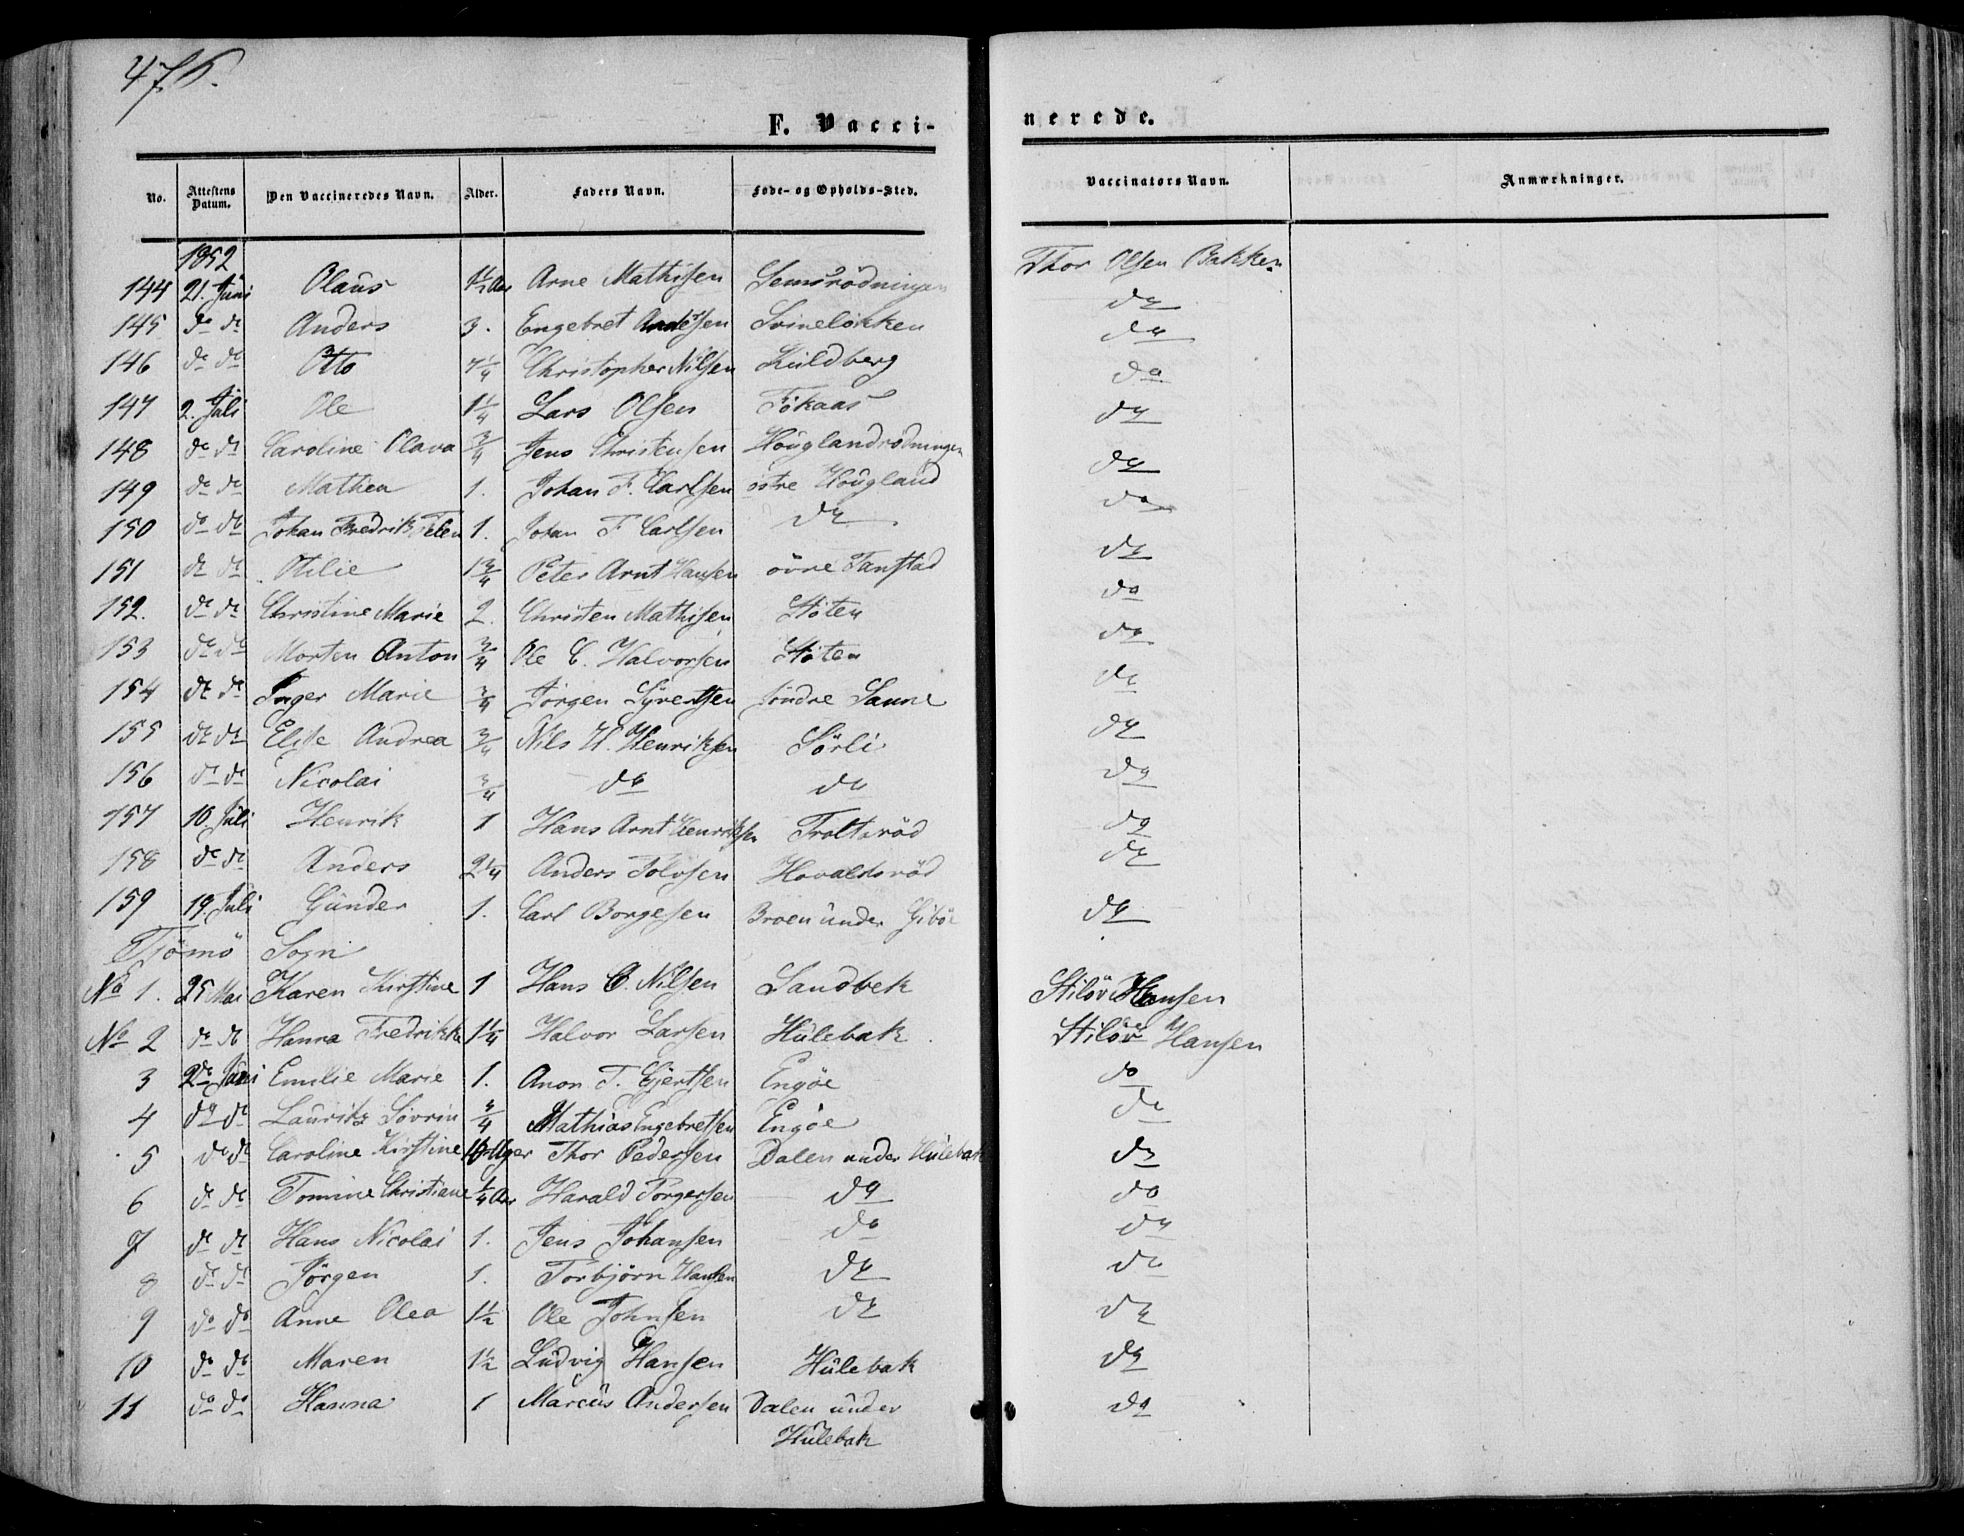 476.
F. Vacci-
nerede.
No. Attestens Datum. Den Vaccineredes Navn. Alder. Faders Navn. Føde- og Opholds-Sted. Vaccinators Navn. Anmærkninger.
1852
144 21. Juni Olaus 1½ Aar Arne Mathisen Semsrödningen Thor Olsen Bakken
145 do do Anders 3. Engebret Andersen Svinelökken do
146 do do Otto Christopher Nilsen Kuldberg do
147 2. Juli Ole 1¼ Lars Olsen Fökaas do
148 do do Caroline Olava ¾ Jens Christensen Houglandrødningen do
149 do do Mathea 1. Johan F. Carlsen östre Hougland do
150 do do Johan Fredrik 1. Johan F Carlsen do do
151 do do Otilie 1¾ Peter Arnt Hansen övre Tanstad do
152. do do Christine Marie 2. Christen Mathisen Stöten do
153 do do Morten Anton ¾ Ole C. Halvorsen Stöten do
154 do do Inger Marie ¾ Jörgen Syvertsen söndre Sanne do
155 do do Elise Andrea ¾ Nils H. Henriksen Sörli do
156 do do Nicolai ¾ do do do
157 10 Juli Henrik 1 Hans Arnt Henriksen Troltsröd do
158 do do Anders 2¼ Anders Tolvsen Hovaldsröd do
159 19. Juli Gunder 1. Carl Borgesen Broen under Giböe do
Tjömö Sogn
No 1. 25 Mai Karen Kirstine 1 Hans C. Nilsen Sandbek Stilöv Hansen
No 2 do do Hanna Fredrikke 1¼ Halvor Larsen Hulebak Stilöv Hansen
3 2de Juni Emilie Marie 1. Anon T. Gjertsen Engöe do
4 do do Lauritz Sövrin ¾ Mathias Engebretsen Engöe do
5 do do Caroline Kirstine Uger Thor Pedersen Dalen under Hulebak do
6 do do Tomine Christiane ¼ Aar Harald Torgersen do do
7 do do Hans Nicolai 1. Jens Johansen do do
8 do do Jörgen 1. Torbjörn Hansen do do
9 do do Anne Olea 1½ Ole Johnsen do do
10 do do Maren 1½ Ludvig Hansen Hulebak do
11 do do Hanna 1 Marcus Andersen Dalen under do
Hulebak